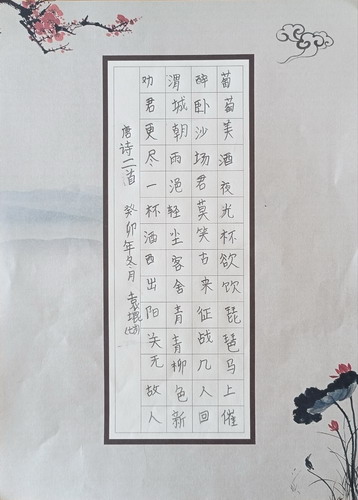 葡萄美酒夜光杯欲饮琵琶马上催
醉卧沙场君莫笑古来征战几人回
渭城朝雨浥轻尘客舍青青柳色新
劝君更尽一杯酒西出阳关无故人
唐诗二首 癸卯年冬月 袁琨